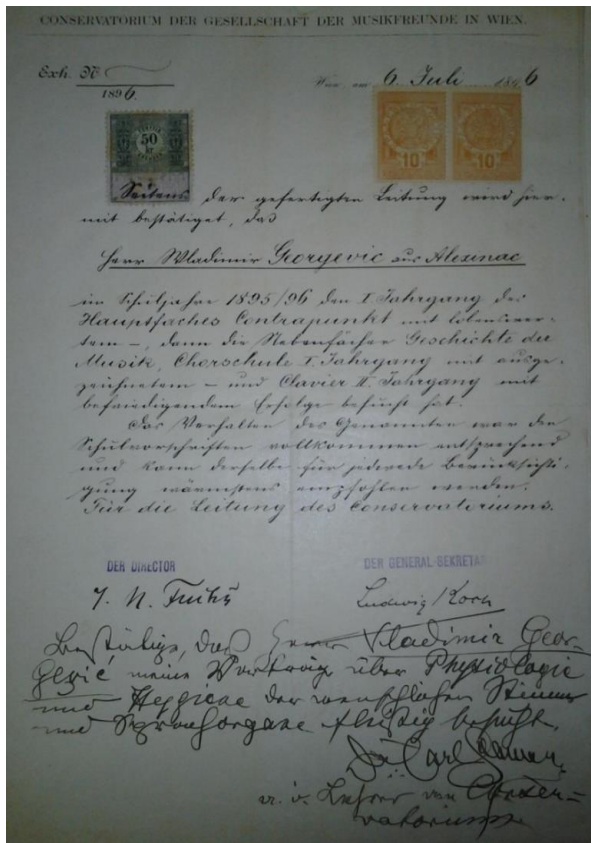 CONSERVATORIUM DER GESELLSCHAFT DER MUSIKFREUNDE IN WIEN.
Exh. № 
1896.
Wien, am 6. Juli 1896
50
10
10
Seitens der gefertigten Leitung wird hier-
mit bestätiget, daß
Herr Wladimir Georgević aus Alexinac
im Schuljahre 1895/96 den I. Jahrgang des
Hauptfaches Contrapunkt mit lobenswer-
tem –, dann die Nebenfächer Geschichte der
Musik, Chorschule I. Jahrgang mit ausge-
zeichnetem – und Clavier II. Jahrgang mit
befriedigendem Erfolge besucht hat.
Das Verhalten des Genannten war den
Schulvorschriften vollkommen entsprechend
und kann derselbe für jedwede Berücksichti-
gung wärmstens empfohlen werden.
Für die Leitung des Conservatoriums.
DER DIRECTOR
DER GENERAL-SEKRETÄR
J. N. Fuchs
Ludwig Koch
Bestätige, daß Herr Vladimir Geor-
gević meine Vorträge über Physiologie
und Hygiene der menschlichen Stimm
und Sprachorgane fleißig besucht.
Dr. Carl
Lehrer am Conser-
vatorium